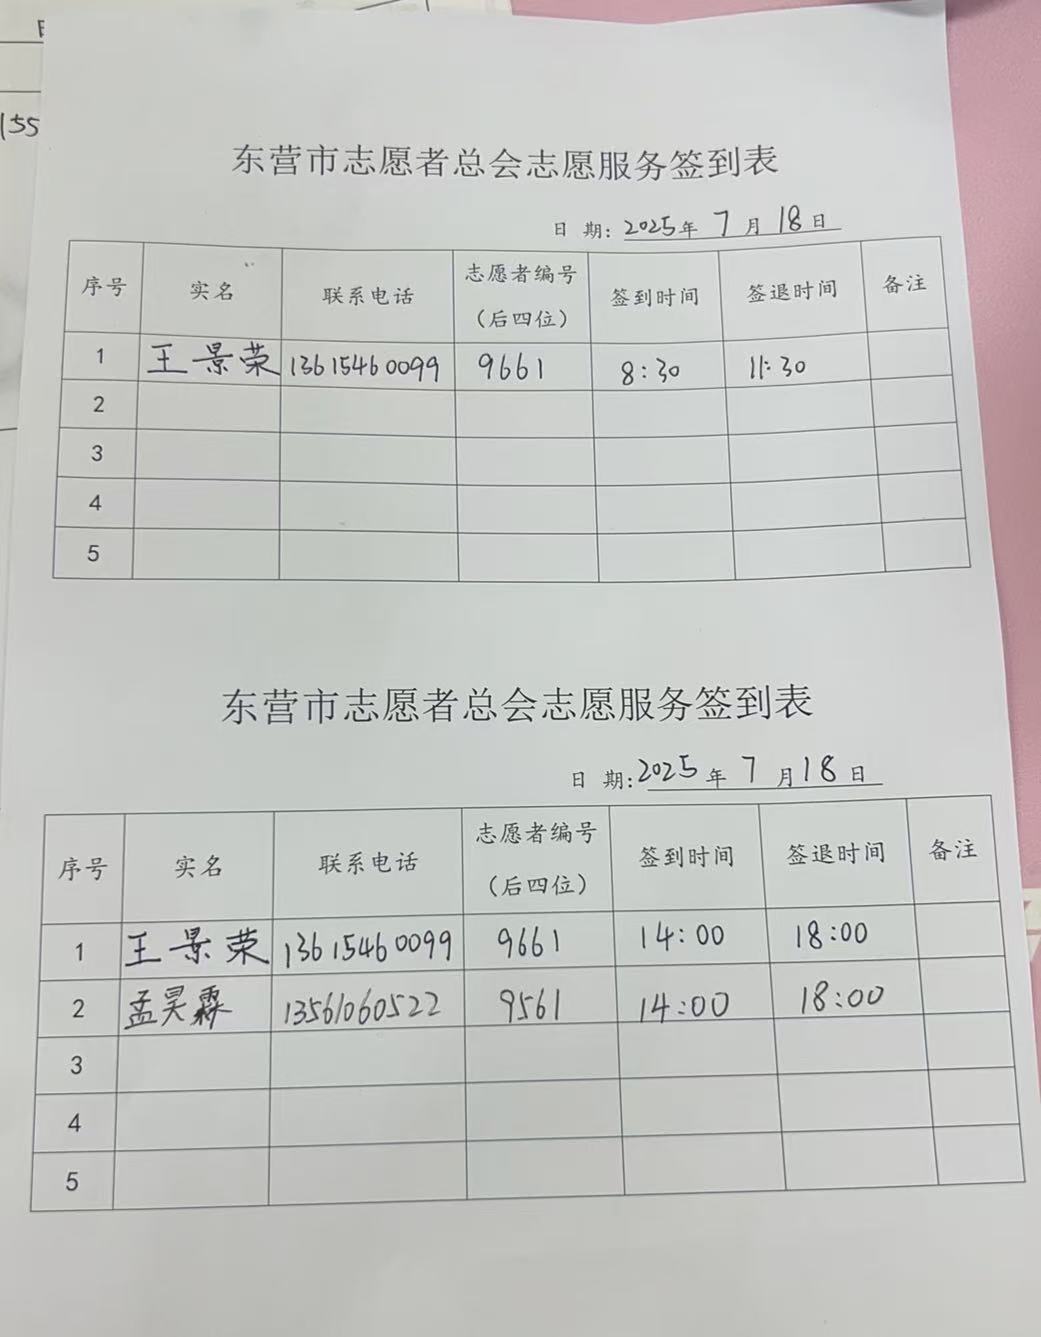 155
东营市志愿者总会志愿服务签到表
日 期: 2025年 7 月 18 日
序号 实名 联系电话 志愿者编号（后四位） 签到时间 签退时间 备注
1 王景荣 13615460099 9661 8:30 11:30
2
3
4
5
东营市志愿者总会志愿服务签到表
日 期: 2025 年 7 月 18 日
序号 实名 联系电话 志愿者编号（后四位） 签到时间 签退时间 备注
1 王景荣 13615460099 9661 14:00 18:00
2 孟昊霖 13561060522 9561 14:00 18:00
3
4
5